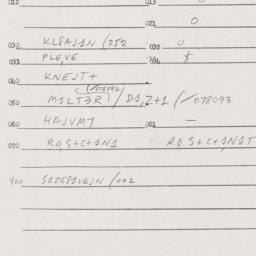 012 013 0
021 0
030 KL8AJ1N (252 032 0
033 PLE,VE 034 $
040 KNEJT+
(✓078092)
050 M1LT3R / D1,Z+1 (✓078093
060 HAJVM7 061 —
070 RO,S+C+1N1 RO,S+C+1N1T
900 S12681VEJN /002